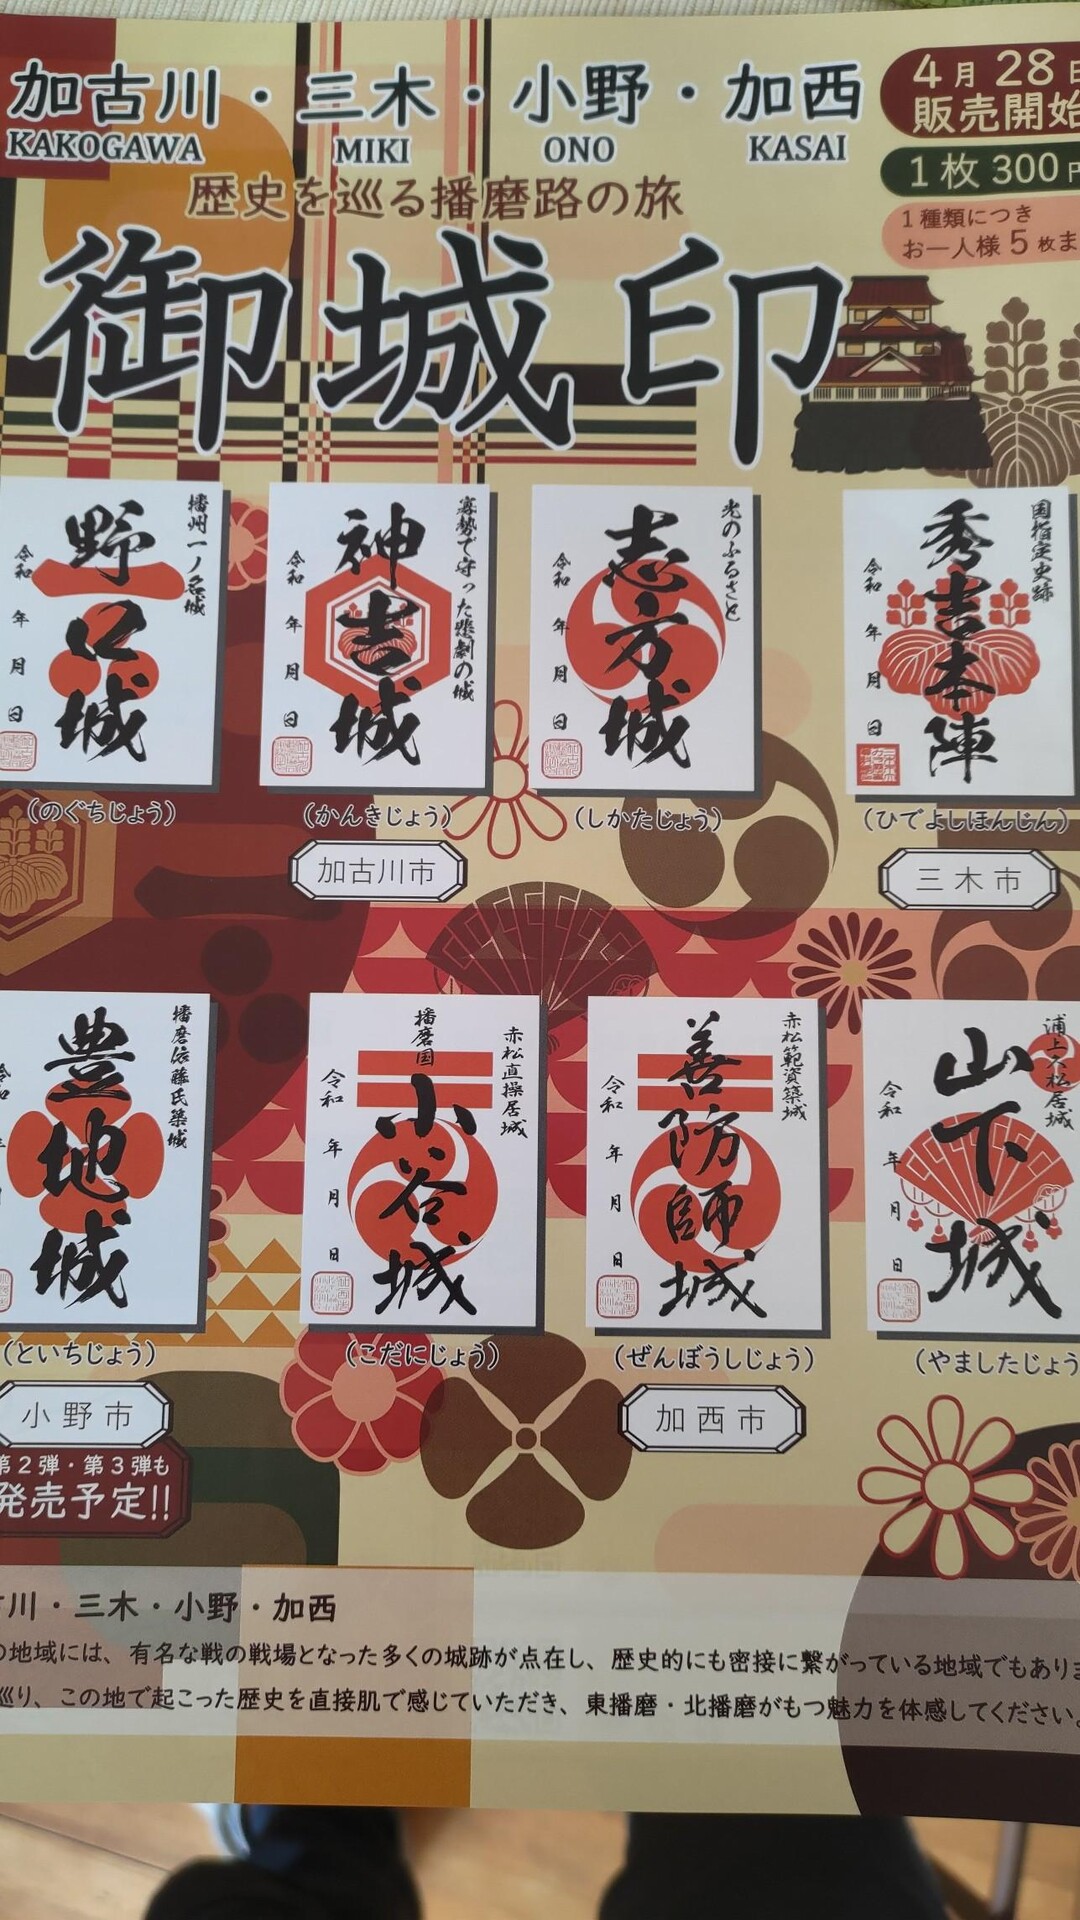 加古川・三木・小野・加西
KAKOGAWA MIKI ONO KASAI
4月28日
販売開始
1枚300円
1種類につき
お一人様5枚ま
歴史を巡る播磨路の旅
御城印
播州一ノ名城
野口城
令和 年 月 日
(のぐちじょう)
寡勢で守った悲劇の城
神吉城
令和 年 月 日
(かんきじょう)
光のふるさと
志方城
令和 年 月 日
(しかたじょう)
国指定史跡
秀吉本陣
令和 年 月 日
(ひでよしほんじん)
加古川市
三木市
播磨依藤氏築城
豊地城
(といちじょう)
赤松直操居城
播磨国
小谷城
令和 年 月 日
(こだにじょう)
赤松範資築城
善防師城
令和 年 月 日
(ぜんぼうしじょう)
浦上久松居城
山下城
令和 年 月 日
(やましたじょう
小野市
加西市
第2弾・第3弾も
発売予定!!
川・三木・小野・加西
の地域には、有名な戦の戦場となった多くの城跡が点在し、歴史的にも密接に繋がっている地域でもありま
巡り、この地で起こった歴史を直接肌で感じていただき、東播磨・北播磨がもつ魅力を体感してください。